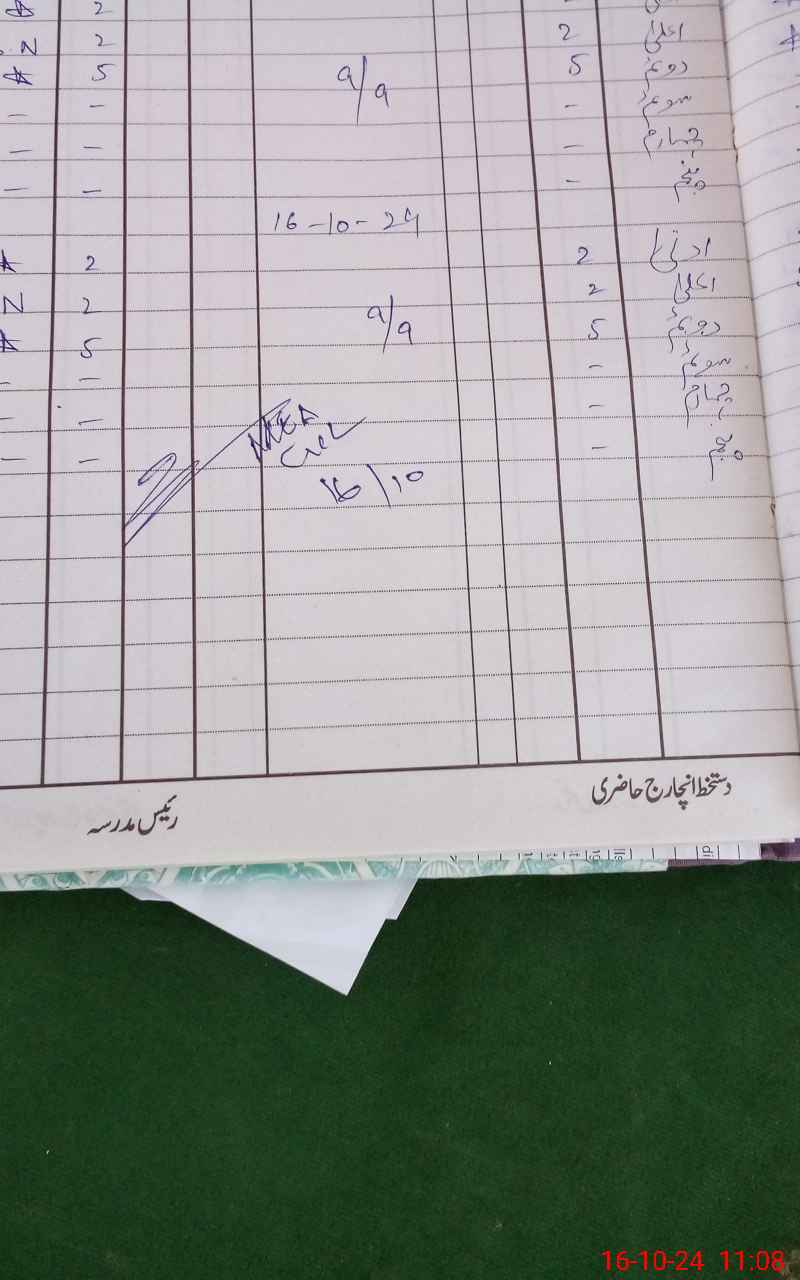 2 2
N 2 2 اعلیٰ
5 9/9 5 دوئم
- - - سوئم
- - - چہارم
- - - پنجم
16-10-24
2 2 ادنیٰ
N 2 2 اعلیٰ
5 9/9 5 دوئم
- - - سوئم
- - - چہارم
- - - پنجم
16/10
دستخط انچارج حاضری
رئیس مدرسہ
16-10-24 11:08